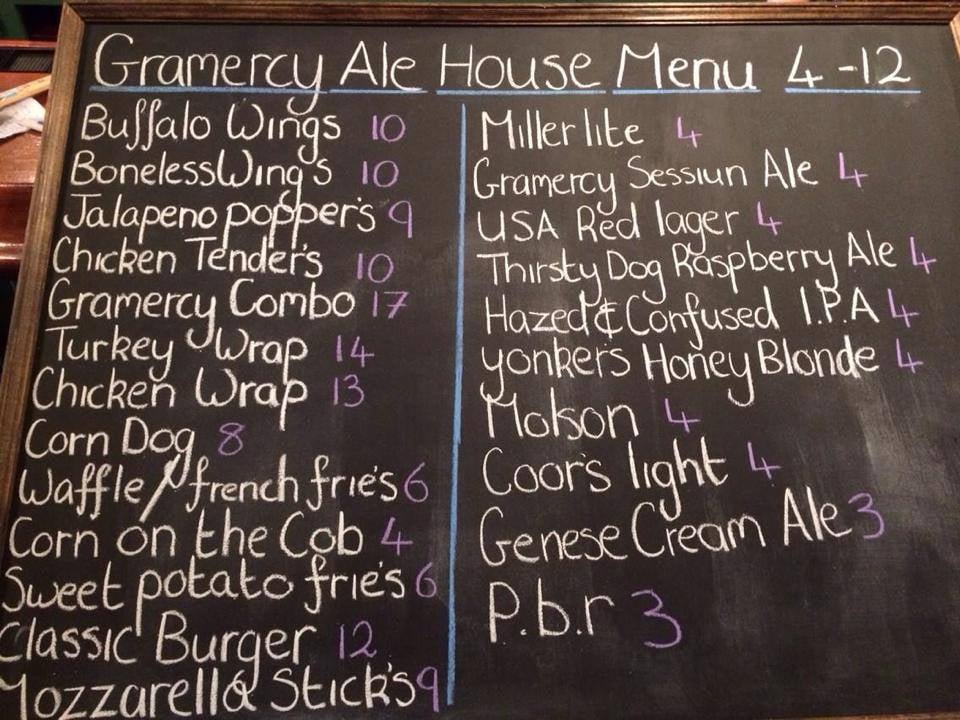 Gramercy Ale House Menu 4-12
Buffalo Wings 10
Boneless Wing's 10
Jalapeno popper's 9
Chicken Tender's 10
Gramercy Combo 17
Turkey Wrap 14
Chicken Wrap 13
Corn Dog 8
Waffle/french frie's 6
Corn on the Cob 4
Sweet potato frie's 6
Classic Burger 12
Mozzarella Stick's 9
Miller lite 4
Gramercy Sessiun Ale 4
USA Red lager 4
Thirsty Dog Raspberry Ale 4
Hazed & Confused I.P.A 4
yonkers Honey Blonde 4
Molson 4
Coor's light 4
Genese Cream Ale 3
P.b.r 3